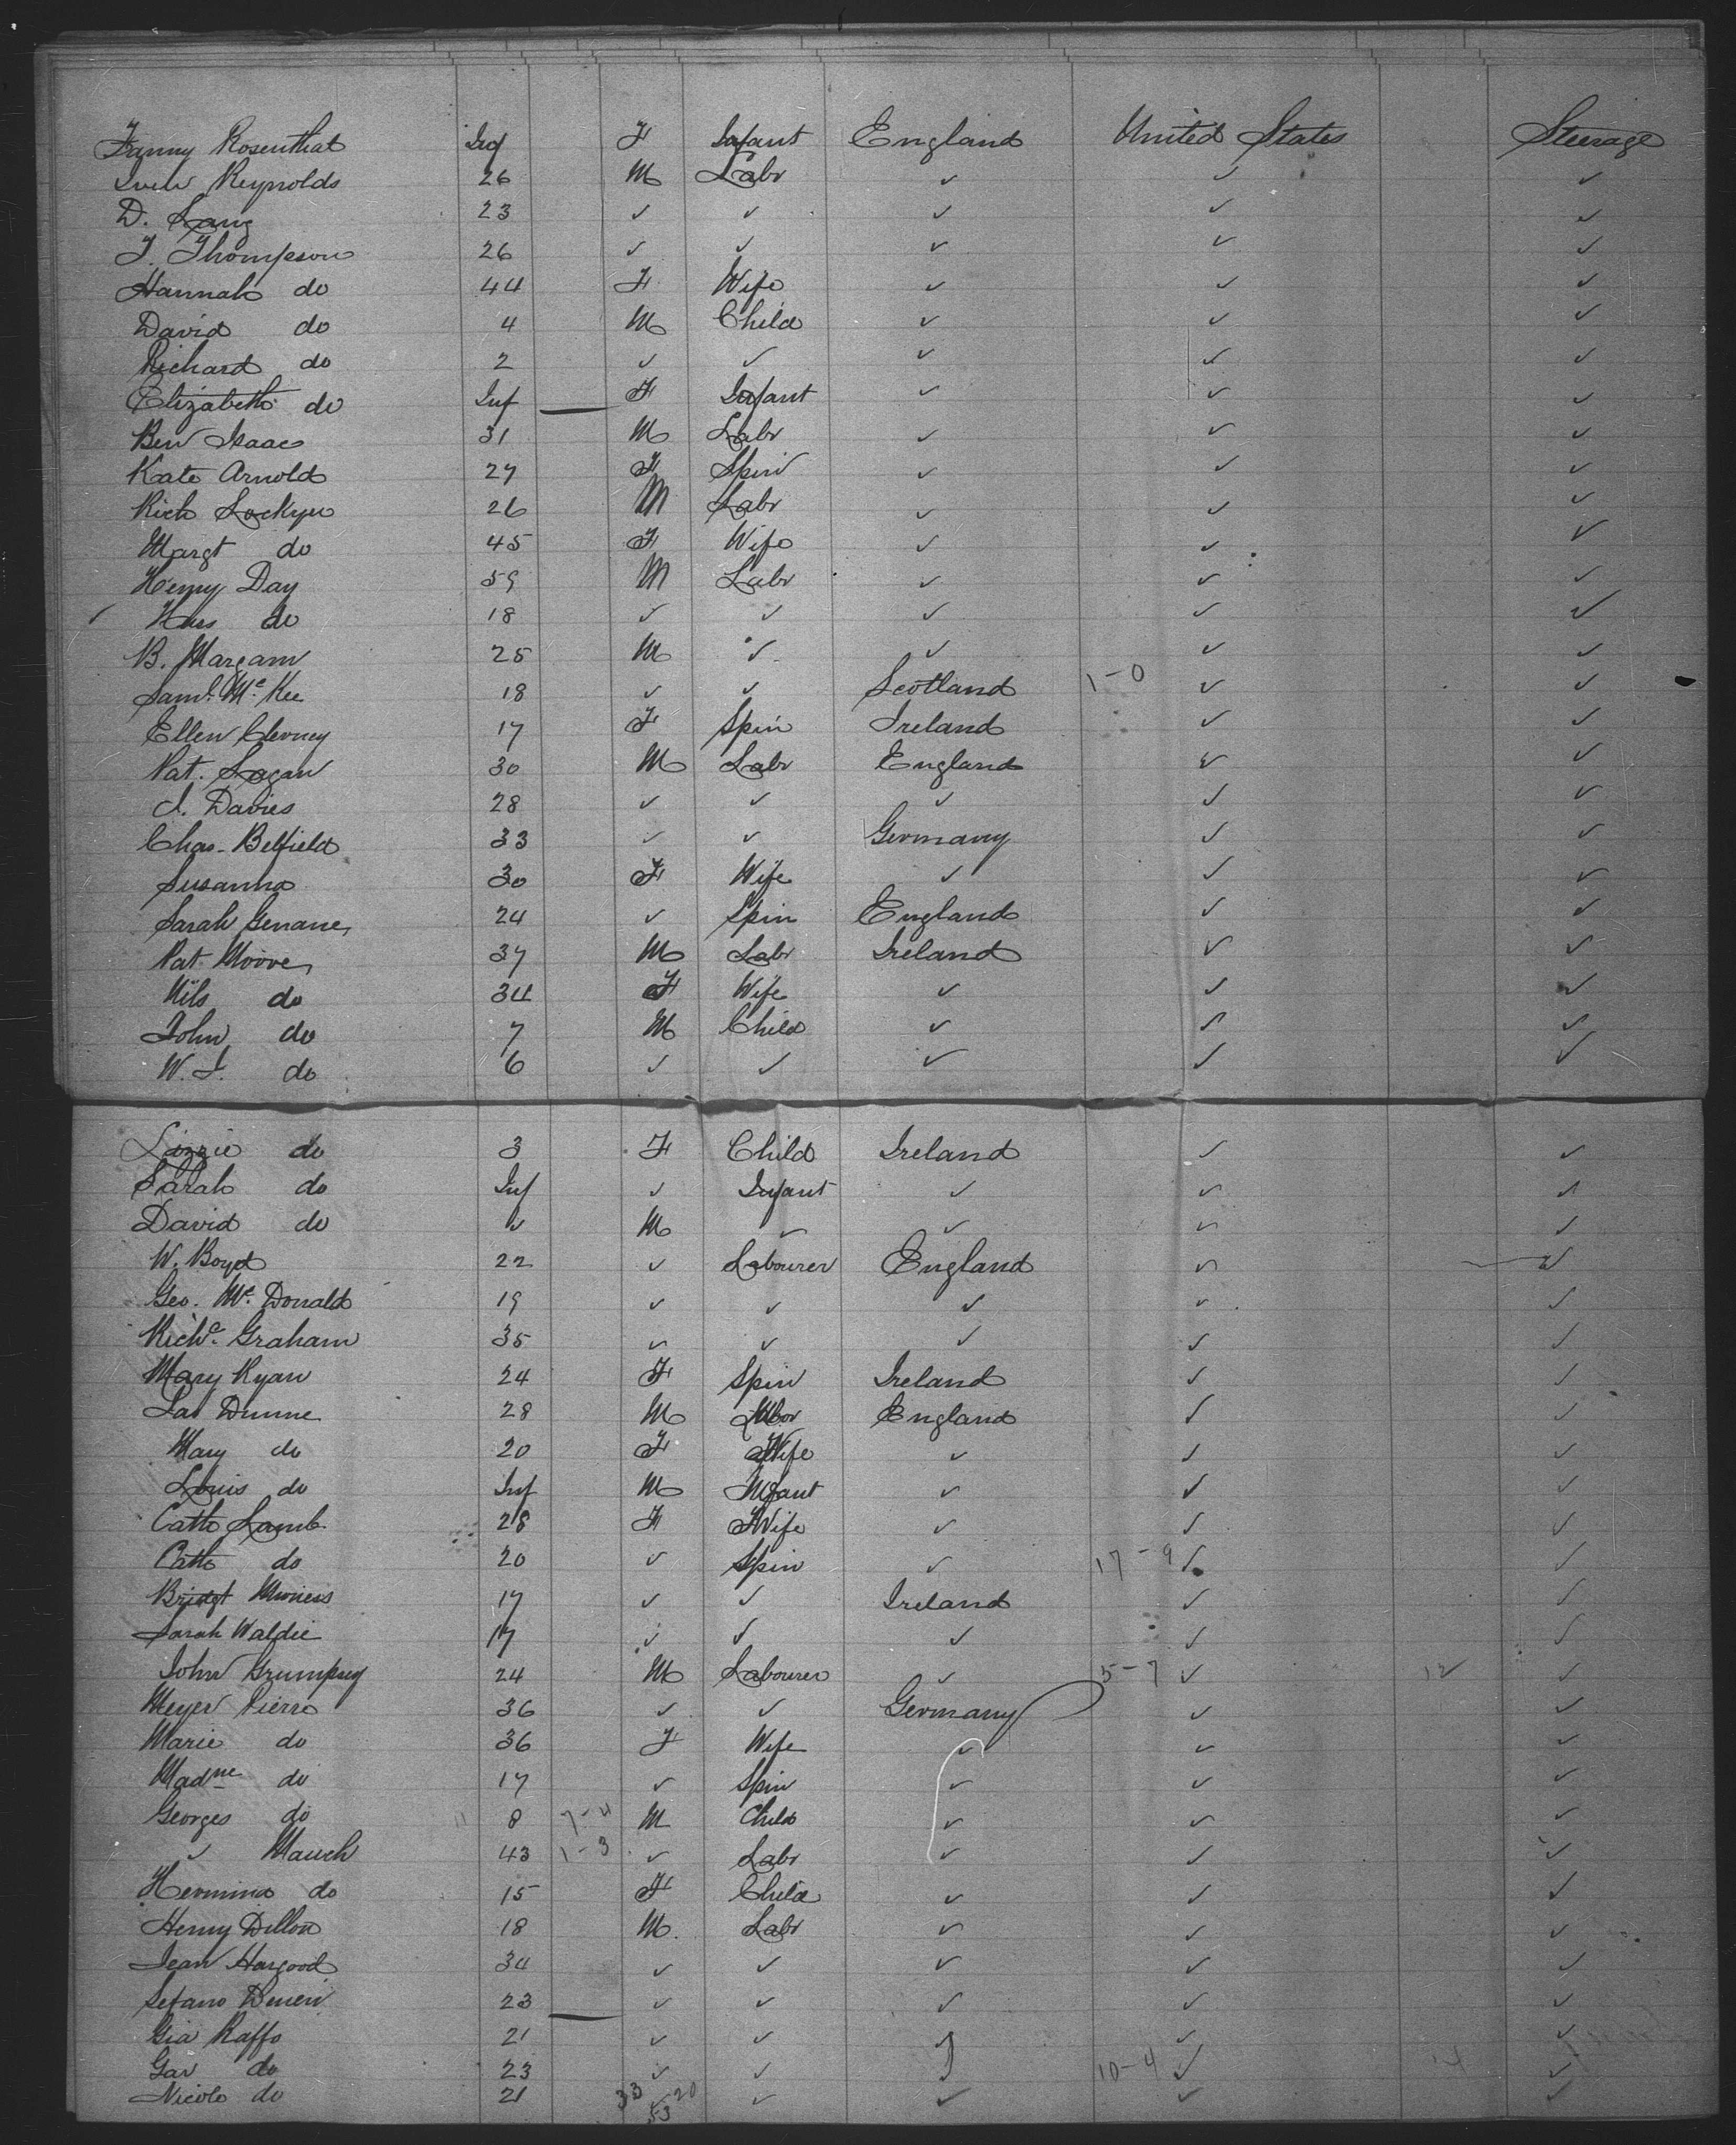 Fanny Rosenthal Inf F Infant England United States Steerage
Reynolds 26 M Labr ✓ ✓ ✓
D. Lang 23 ✓ ✓ ✓ ✓ ✓
J. Thompson 26 ✓ ✓ ✓ ✓ ✓
Hannah do 44 F Wife ✓ ✓ ✓
David do 4 M Child ✓ ✓ ✓
Richard do 2 ✓ ✓ ✓ ✓ ✓
Elizabeth do Inf F Infant ✓ ✓ ✓
Ben Isaacs 31 M Labr ✓ ✓ ✓
Kate Arnold 27 F Spin ✓ ✓ ✓
Rich Lockyer 26 M Labr ✓ ✓ ✓
Margt do 45 F Wife ✓ ✓ ✓
Henry Day 59 M Labr ✓ ✓ ✓
do 18 ✓ ✓ ✓ ✓ ✓
B. Margam 25 M ✓ ✓ ✓ ✓
Saml. Mc Kee 18 ✓ ✓ Scotland 1-0 ✓ ✓
Ellen 17 F Spin Ireland ✓ ✓
Pat. Logan 30 M Labr England ✓ ✓
J. Davies 28 ✓ ✓ ✓ ✓ ✓
Chas. Belfield 33 ✓ ✓ Germany ✓ ✓
Susanna 30 F Wife ✓ ✓ ✓
Sarah 24 ✓ Spin England ✓ ✓
Pat Moore 37 M Labr Ireland ✓ ✓
do 34 F Wife ✓ ✓ ✓
John do 7 M Child ✓ ✓ ✓
W. J. do 6 ✓ ✓ ✓ ✓ ✓
Lizzie do 3 F Child Ireland ✓ ✓
Sarah do Inf ✓ Infant ✓ ✓ ✓
David do ✓ M ✓ ✓ ✓ ✓
W. Boyd 22 ✓ Labourer England ✓ ✓
Geo. Mc Donald 19 ✓ ✓ ✓ ✓ ✓
Richd. Graham 35 ✓ ✓ ✓ ✓ ✓
Mary Ryan 24 F Spin Ireland ✓ ✓
Jas Dunne 28 M England ✓ ✓
Mary do 20 F Wife ✓ ✓ ✓
Louis do Inf M Infant ✓ ✓ ✓
Cath Lamb 28 F Wife ✓ ✓ ✓
Cath do 20 ✓ Spin ✓ 17-9 ✓ ✓
Bridgt 17 ✓ ✓ Ireland ✓ ✓
Sarah Waldie 17 ✓ ✓ ✓ ✓ ✓
John 24 M Labourer ✓ 5-7 ✓ 12 ✓
Meyer Pierre 36 ✓ ✓ Germany ✓ ✓
Marie do 36 F Wife ✓ ✓ ✓
Madne do 17 ✓ Spin ✓ ✓ ✓
Georges do 11 8 7-4 M Child ✓ ✓ ✓
✓ Mauch 43 1-3 ✓ Labr ✓ ✓ ✓
Hermina do 15 F Child ✓ ✓ ✓
Henry Dillon 18 M. Labr ✓ ✓ ✓
Jean Hargood 34 ✓ ✓ ✓ ✓ ✓
Sefano 23 ✓ ✓ ✓ ✓ ✓
Gia Raffo 21 ✓ ✓ ✓ ✓ ✓
Gav do 23 ✓ ✓ 10-4 ✓ 14 ✓
Nicolo do 21 33 20 ✓ ✓ ✓ ✓ ✓
53